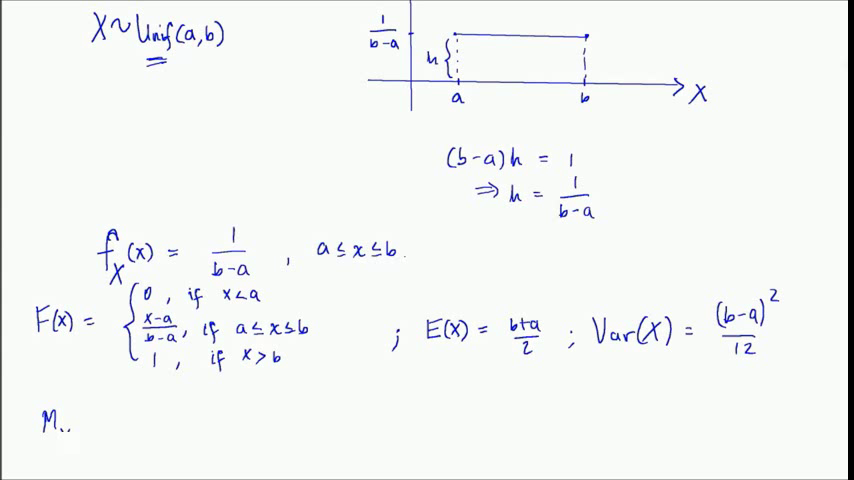 X ~ Unif(a,b)
1/(b-a)
h {
a b X
(b-a)h = 1
⇒ h = 1/(b-a)
f_X(x) = 1/(b-a) , a ≤ x ≤ b.
F(x) = { 0 , if x < a
(x-a)/(b-a) , if a ≤ x ≤ b ; E(X) = (b+a)/2 ; Var(X) = (b-a)^2/12
1 , if x > b
M..